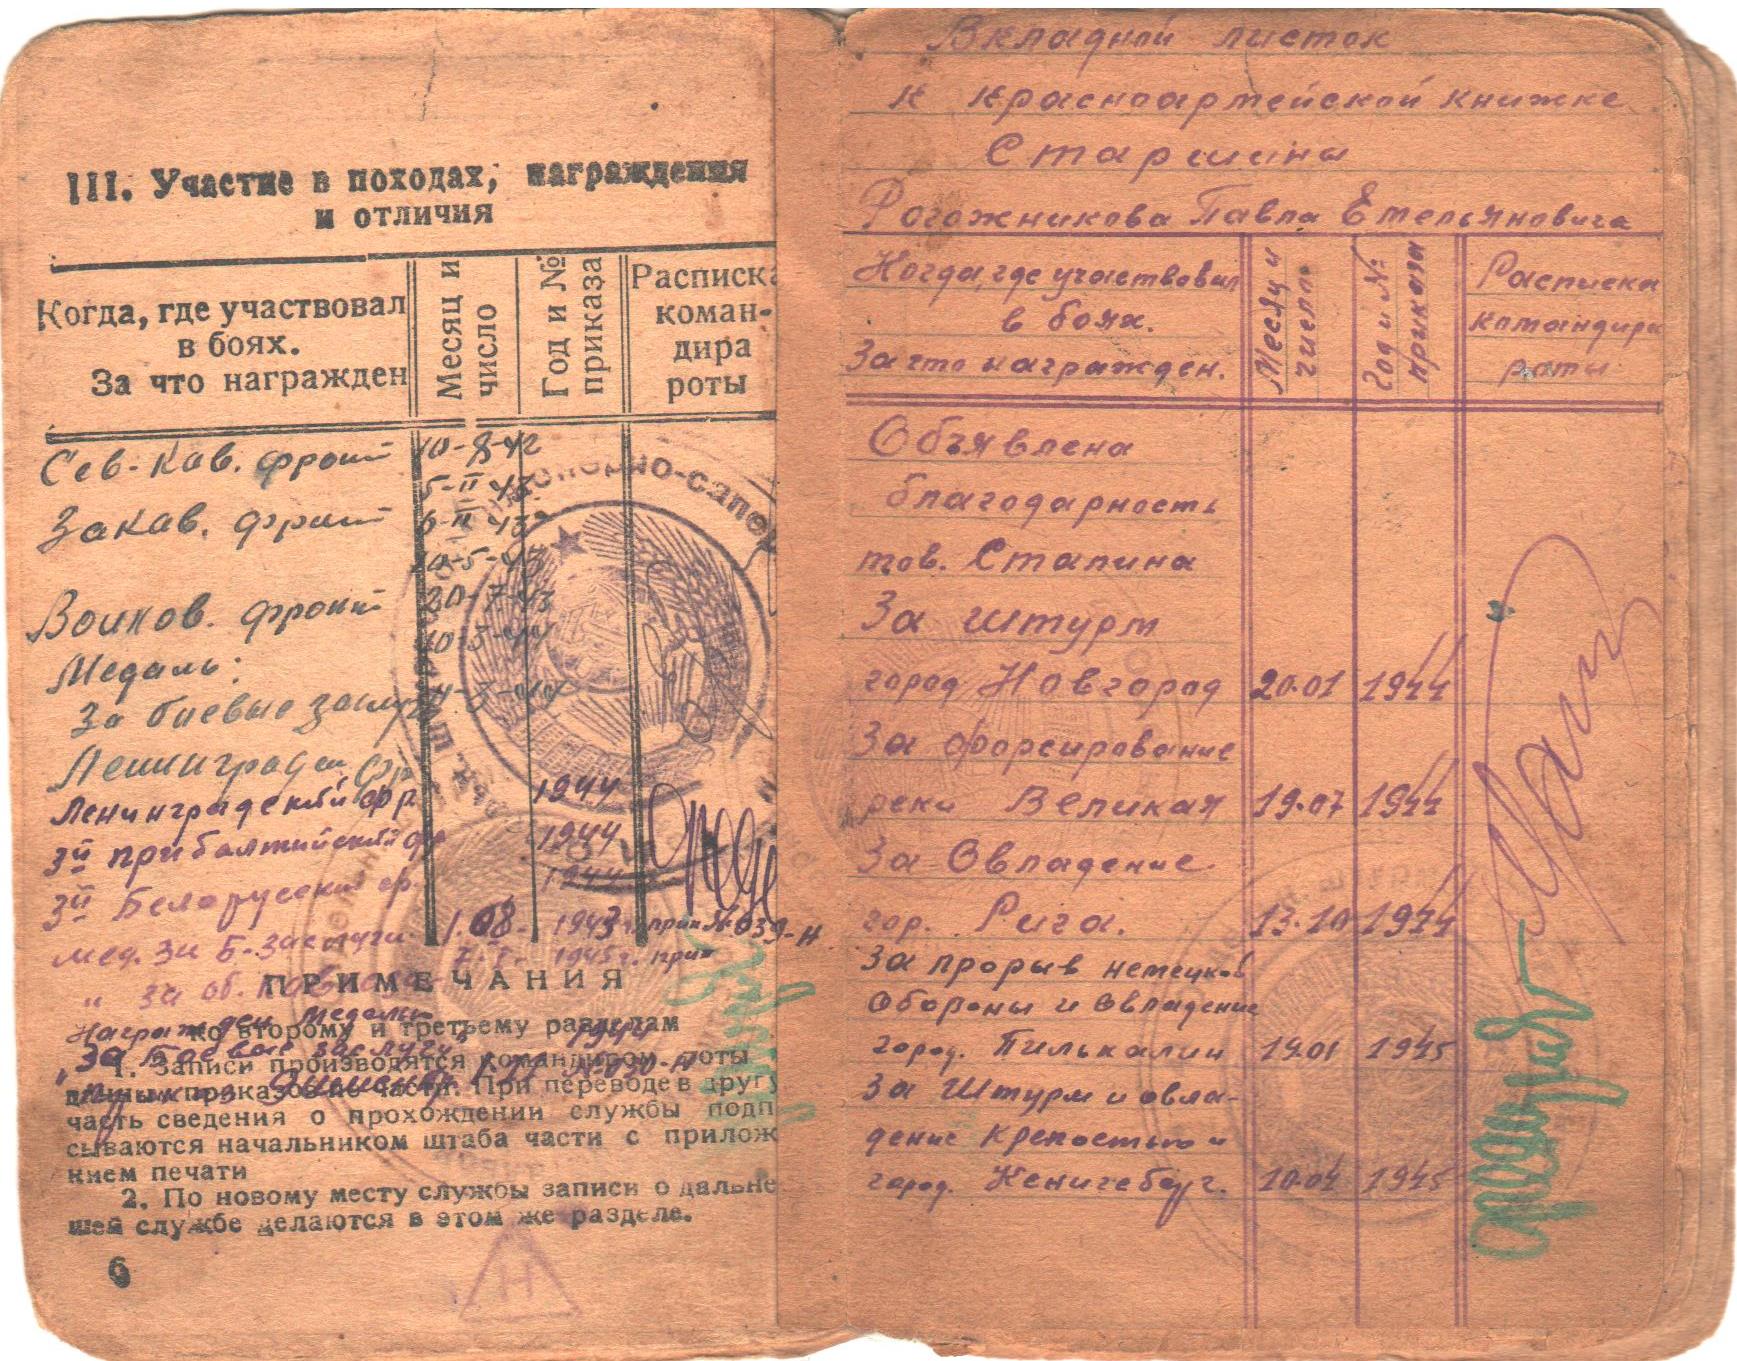 III. Участие в походах, награждения
и отличия
Когда, где участвовал
в боях.
За что награжден
Месяц и
число
Год и №
приказа
Расписка
коман-
дира
роты
Сев-Кав. фронт 10-8-42
5-II 43
Закав. фронт 6-II 43
10-5-43
Волхов. фронт 20-7-43
10-3-44
Медаль:
За боевые
Ленинград
Ленинградский фр. 1944
3й прибалтийский фр 1944
3й Белорусский фр. 1944
мед. За Б-заслуги 1.08. 1943 г. № 039-Н
" за об. Кавказа 1945 г.
ПРИМЕЧАНИЯ
Награжден медалью
ко второму и третьему разделам
"За Боевые заслуги" 1944
1. Записи производятся командиром роты
приказ № 030-Н
данным приказов по части. При переводе в другу
часть сведения о прохождении службы подп
сываются начальником штаба части с прилож
нием печати
2. По новому месту службы записи о дальне
шей службе делаются в этом же разделе.
Н
6
Вкладной листок
к красноармейской книжке
Старшины
Рогожникова Павла Емельяновича
Когда, где участвовал
в боях.
За что награжден.
Месяц и
число
Год и №
приказа
Расписка
командира
роты
Объявлена
благодарность
тов. Сталина
За штурм
город Новгород 20.01 1944
За форсирование
реки Великая 19.07 1944
За Овладение
гор. Рига. 13.10 1944
За прорыв немецкой
Обороны и овладение
город. Пилькалин 19.01 1945
За Штурм и овла-
дение крепостью и
город. Кенигсберг. 10.04 1945